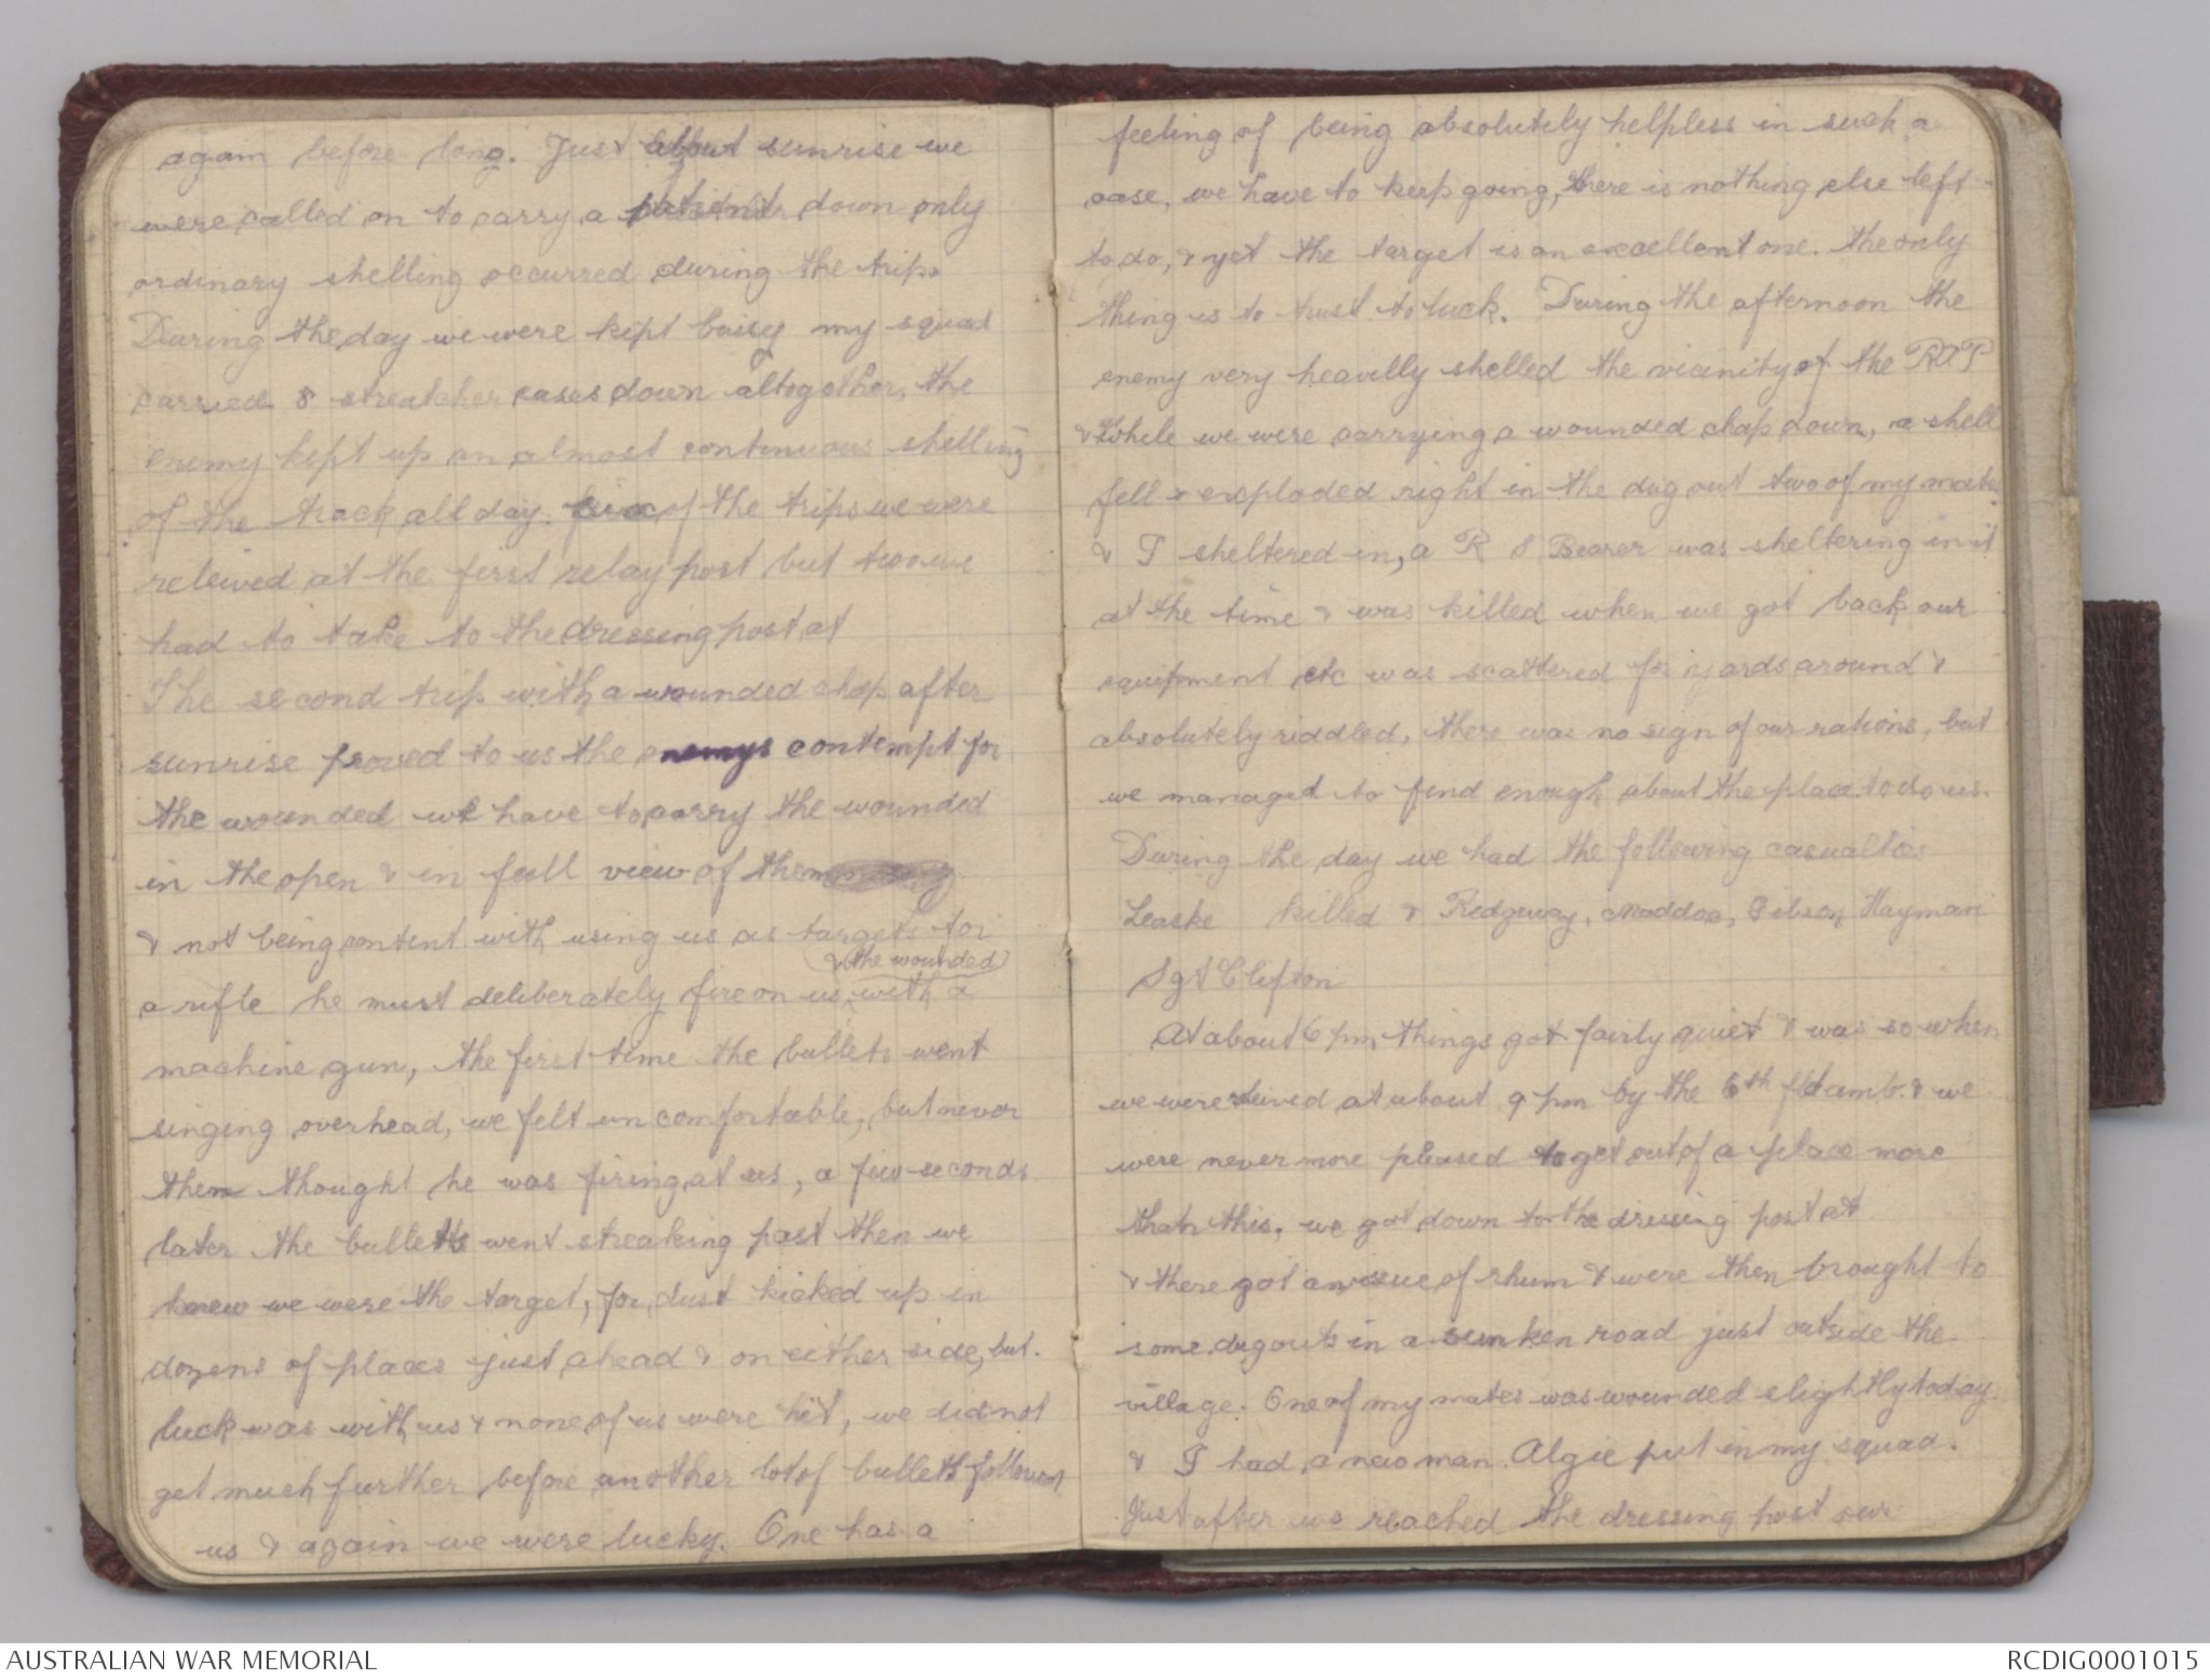 again before long. Just about sunrise we
were called on to carry a patient down only
ordinary shelling occurred during the trip.
During the day we were kept buisy my squad
carried 8 streatcher cases down altogether, the
enemy kept up an almost continuous shelling
of the track all day. Six of the trips we were
releived at the first relay post but two we
had to take to the dressing post at
The second trip with a wounded chap after
sunrise proved to us the enemys contempt for
the wounded we have to carry the wounded
in the open & in full view of them
& not being content with using us as targets for
& the wounded
a rifle he must deliberately fire on us with a
machine gun, the first time the bullets went
singing overhead, we felt uncomfortable, but never
then thought he was firing at us, a few seconds
later the bullets went streaking past then we
knew we were the target, for dust kicked up in
dozens of places just ahead & on either side, but
luck was with us & none of us were hit, we did not
get much further before another lot of bullets followed
us & again we were lucky. One has a
feeling of being absolutely helpless in such a
case, we have to keep going, there is nothing else left
to do, & yet the target is an excellent one. the only
thing is to trust to luck. During the afternoon the
enemy very heavilly shelled the vicinity of the RAP
& While we were carrying a wounded chap down, a shell
fell & exploded right in the dug out two of my mates
& I sheltered in, a R S Bearer was sheltering in it
at the time & was killed when we got back our
equipment etc was scattered for yards around &
absolutely riddled, there was no sign of our rations, but
we managed to find enough about the place to do us.
During the day we had the following casualties
Leaske killed & Ridgeway, Maddox, Gibson, Hayman
Sgt Clifton
At about 6 pm things got fairly quiet & was so when
we were releived at about 9 pm by the 6th fld amb. & we
were never more pleased to get out of a place more
than this. we got down to the dressing post at
& there got an issue of rhum & were then brought to
some dugouts in a sunken road just outside the
village. One of my mates was wounded slightly today.
& I had a new man Algie put in my squad.
Just after we reached the dressing post our
AUSTRALIAN WAR MEMORIAL
RCDIG0001015